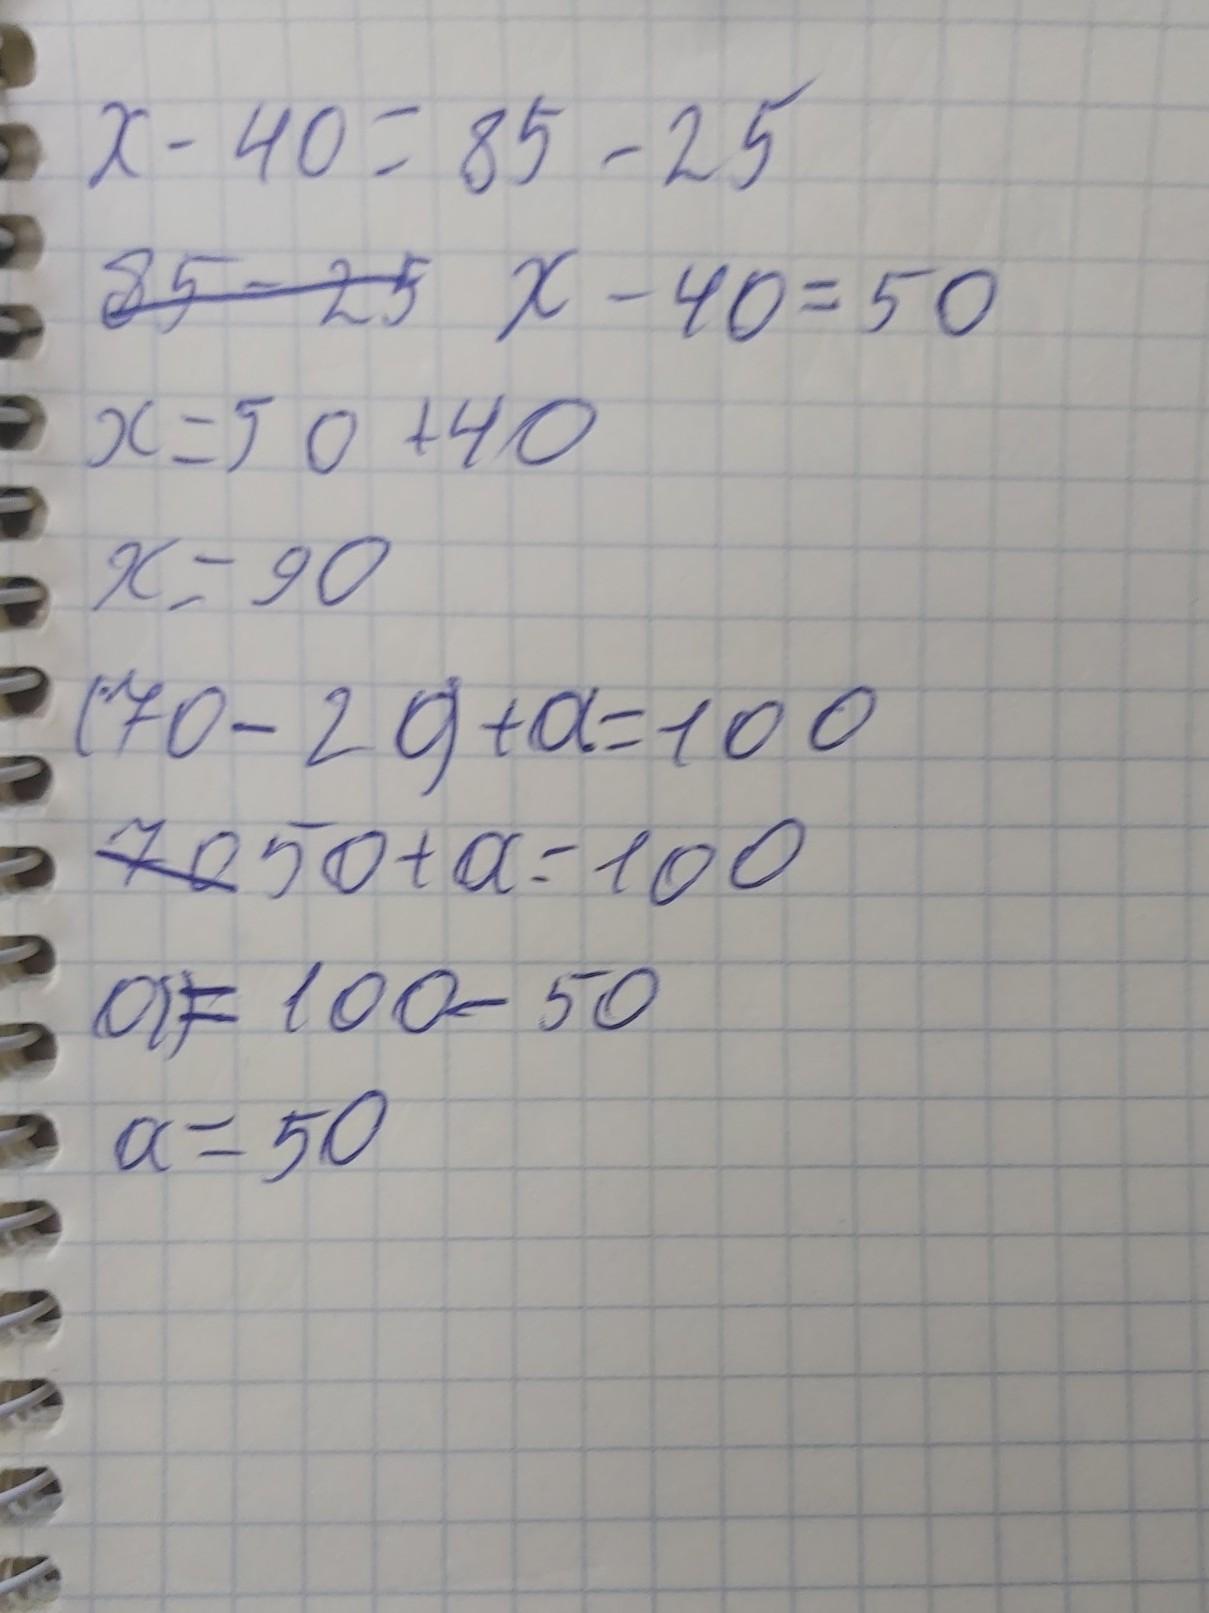 x - 40 = 85 - 25
85 - 25 x - 40 = 50
x = 50 + 40
x = 90
(70 - 20) + a = 100
70 50 + a = 100
a = 100 - 50
a = 50